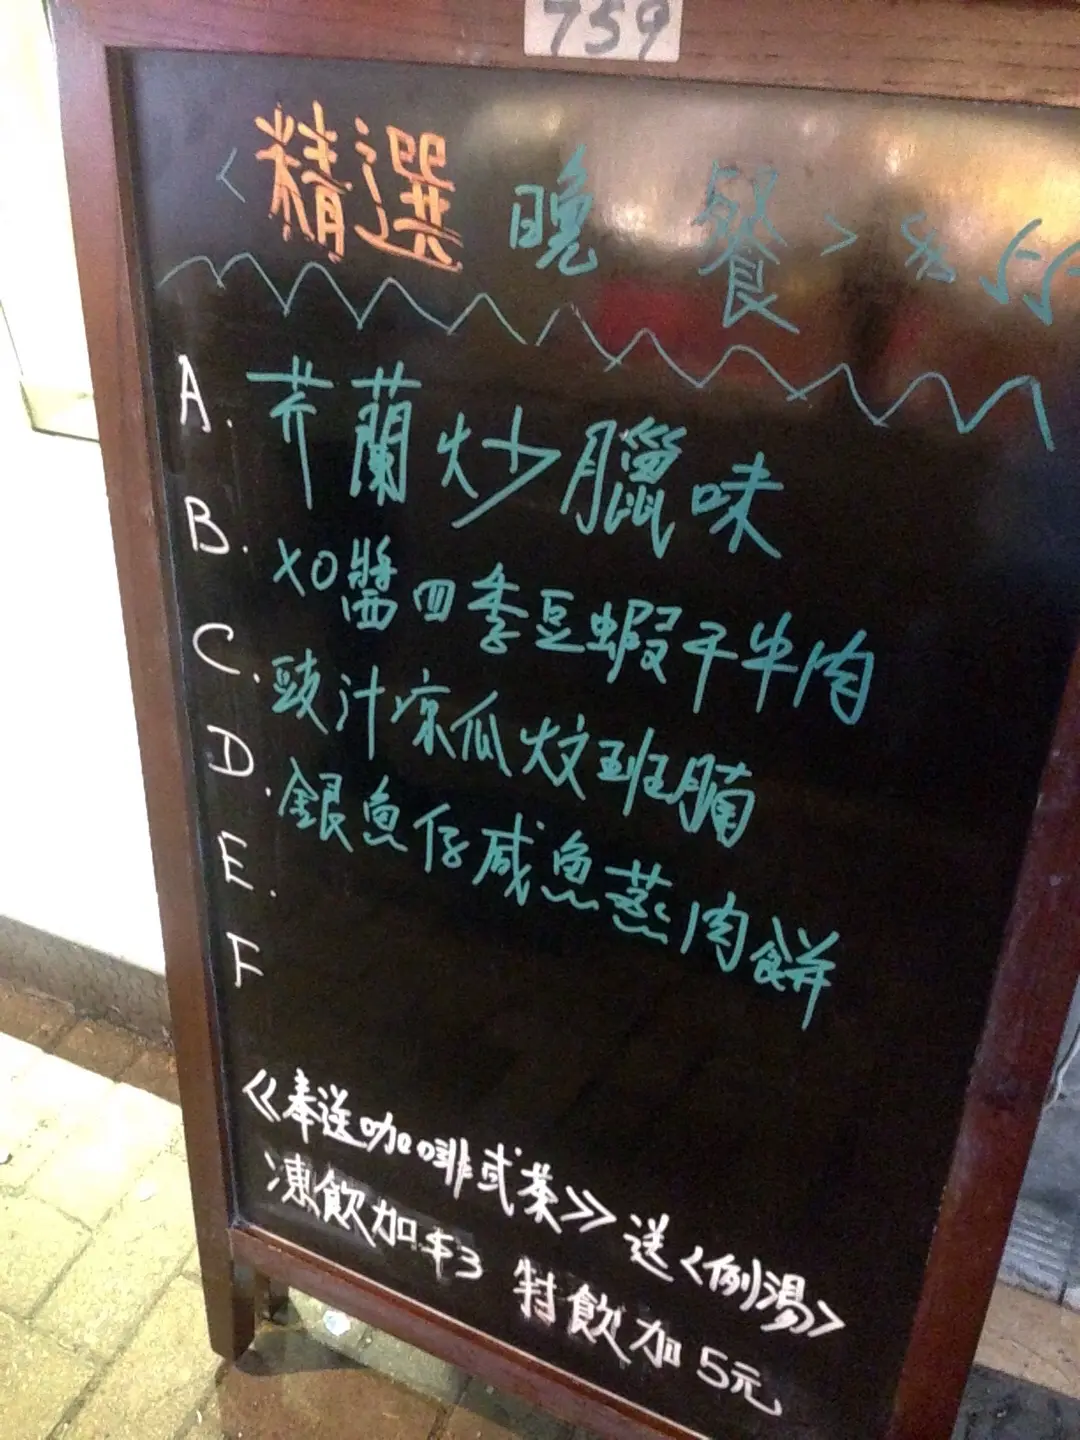 759
<精選 晚 餐> 55
A. 芥蘭炒臘味
B. XO醬四季豆蝦干牛肉
C. 豉汁凉瓜炆班腩
D. 銀魚仔咸魚蒸肉餅
E.
F
《奉送咖啡或茶》送<例湯>
凍飲加$3 特飲加5元